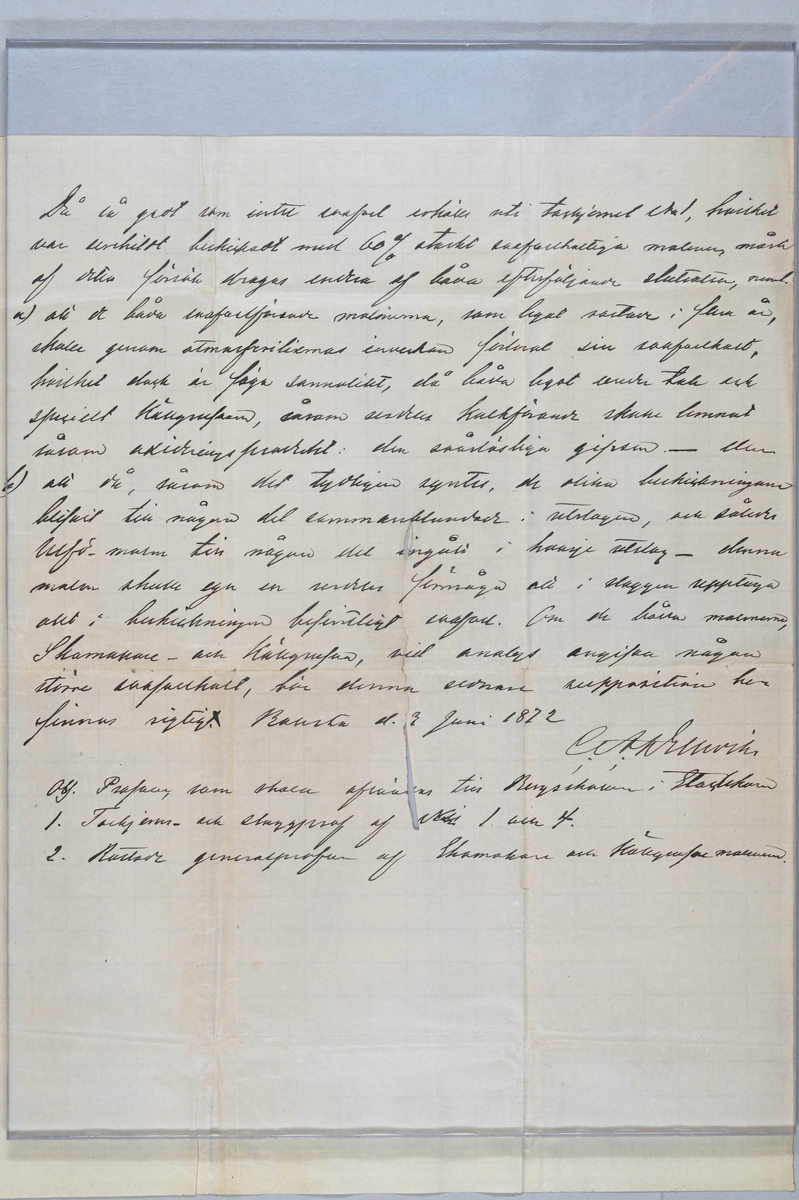 Då så godt som intet svafvel erhålls uti tackjernet N:o 1, hvilket
var enskildt beskickadt med 60% starkt svafvelhaltiga malmer, måste
af detta försök dragas endera af båda efterföljande slutsatser, neml.
a) att de båda svafvelförande malmerna, som legat rostade i flera år,
skulle genom atmosferiliernas inverkan förlorat sin svafvelhalt,
hvilket dock är föga sannolikt, då båda legat under tak och
speciellt Kållgrufvan, såsom serdeles kalkförande skulle lemnat
såsom oxideringsprodukt: den svårlösliga gipsen. — eller
b) att då, såsom det tydligen syntes, de olika beskickningarne
blifvit till någon del sammanblandade i utslagen, och således
Utö-malm till någon del ingått i hvarje utslag — denna
malm skulle ega en serdeles förmåga att i slaggen upptaga
allt i beskickningen befintligt svafvel. Om de båda malmerna,
Skomakare- och Kållgrufvan, vid analys angifva någon
större svafvelhalt, bör denna sednare supposition be-
finnas rigtig. d. 3 Juni 1872
C. A.
Obs. Profven, som skola afsändas till Bergskolan i Stockholm
1. Tackjerns- och slaggprof af N:ris 1 och 4.
2. Rostade generalprofven af Skomakare och Kållgrufve malmerna.